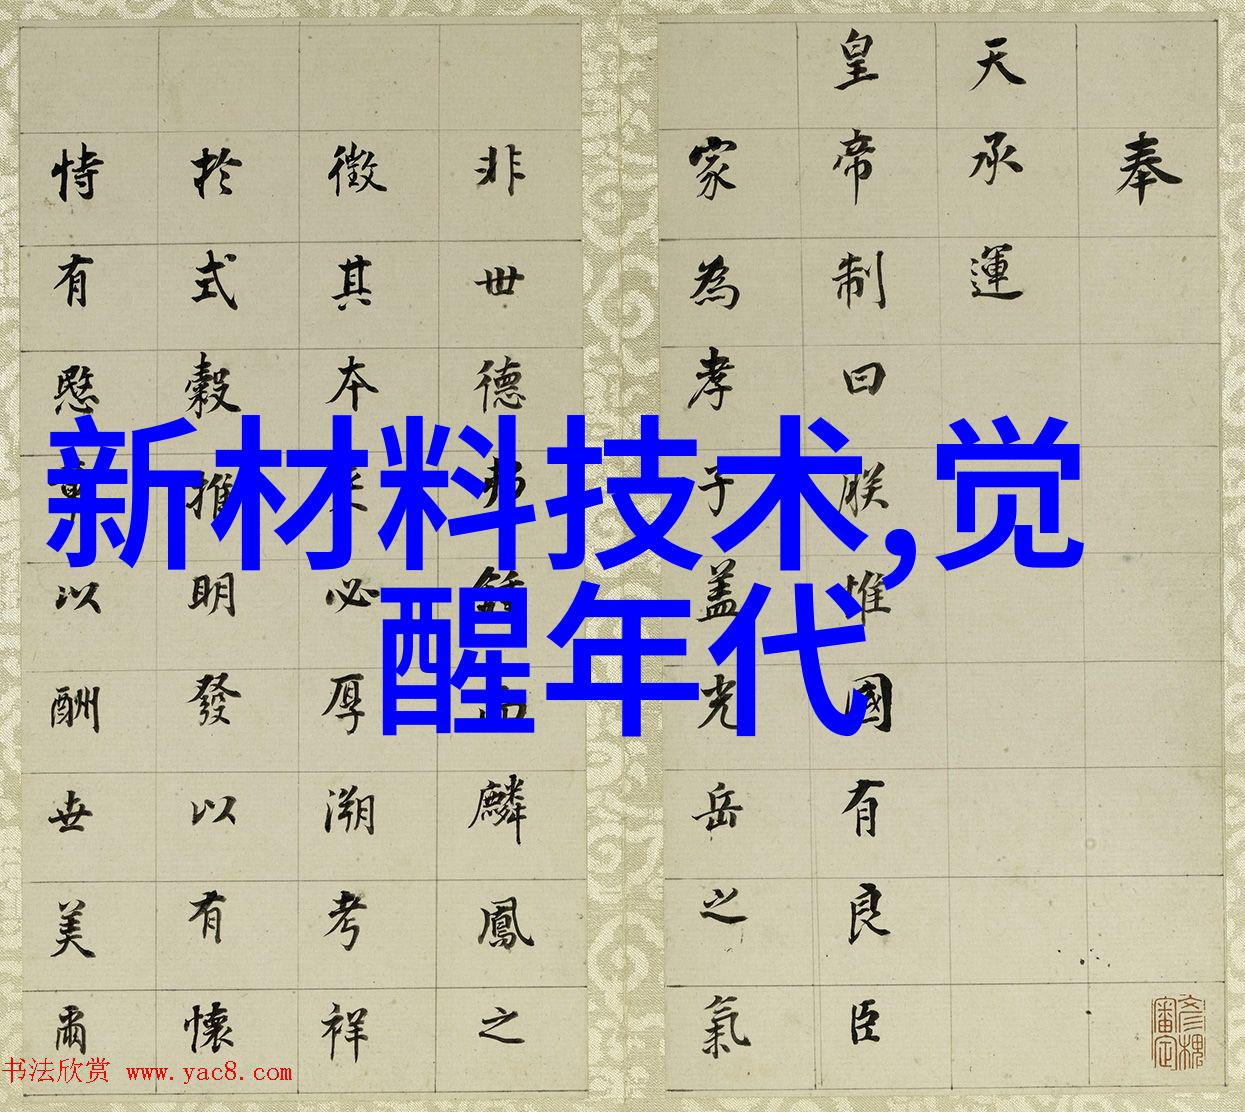 新材料技术,觉
醒年代
奉
天承運
皇帝制曰朕惟國有良臣
家為孝子盖光岳之氣
非世德弗麟鳳之
徵其本必厚溯考祥
於式穀推明發以有懷
恃有愍以酬世美爾
书法欣赏 www.yac8.com